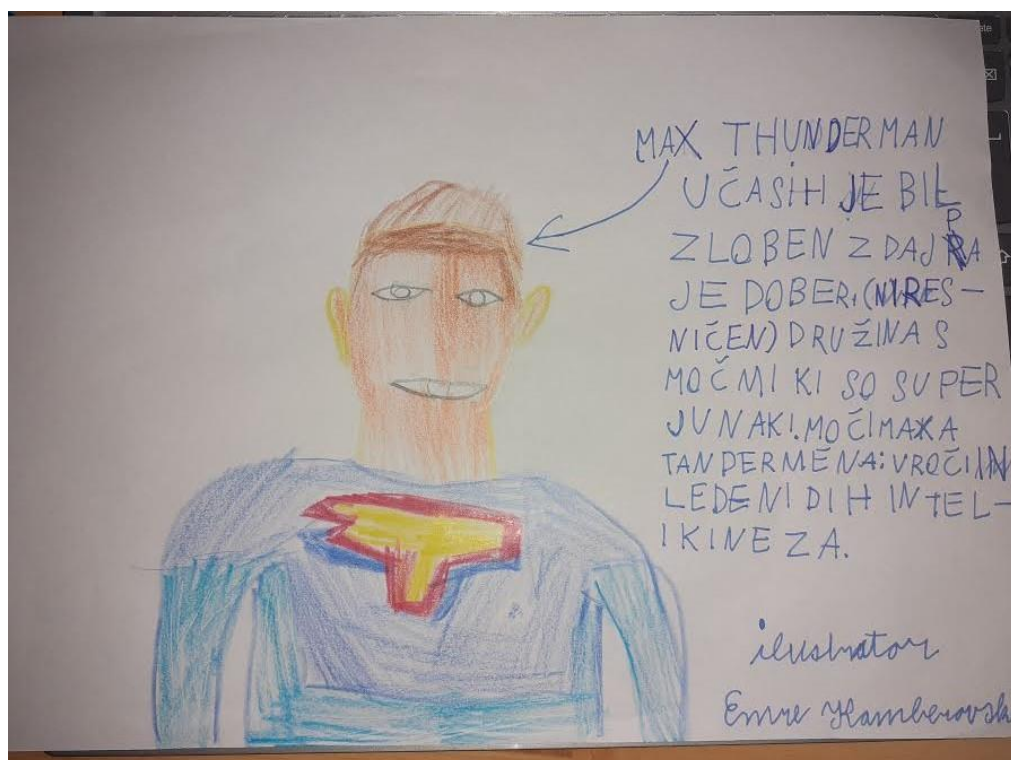 MAX THUNDERMAN
UČASIH JE BIL
ZLOBEN ZDAJ PA
JE DOBER. (NI RES-
NIČEN) DRUŽINA S
MOČMI KI SO SUPER
JUNAKI. MOČI MAXA
TANDERMENA: VROČI IN
LEDENI DIH IN TEL-
IKINEZA.
ilustrator
Emre